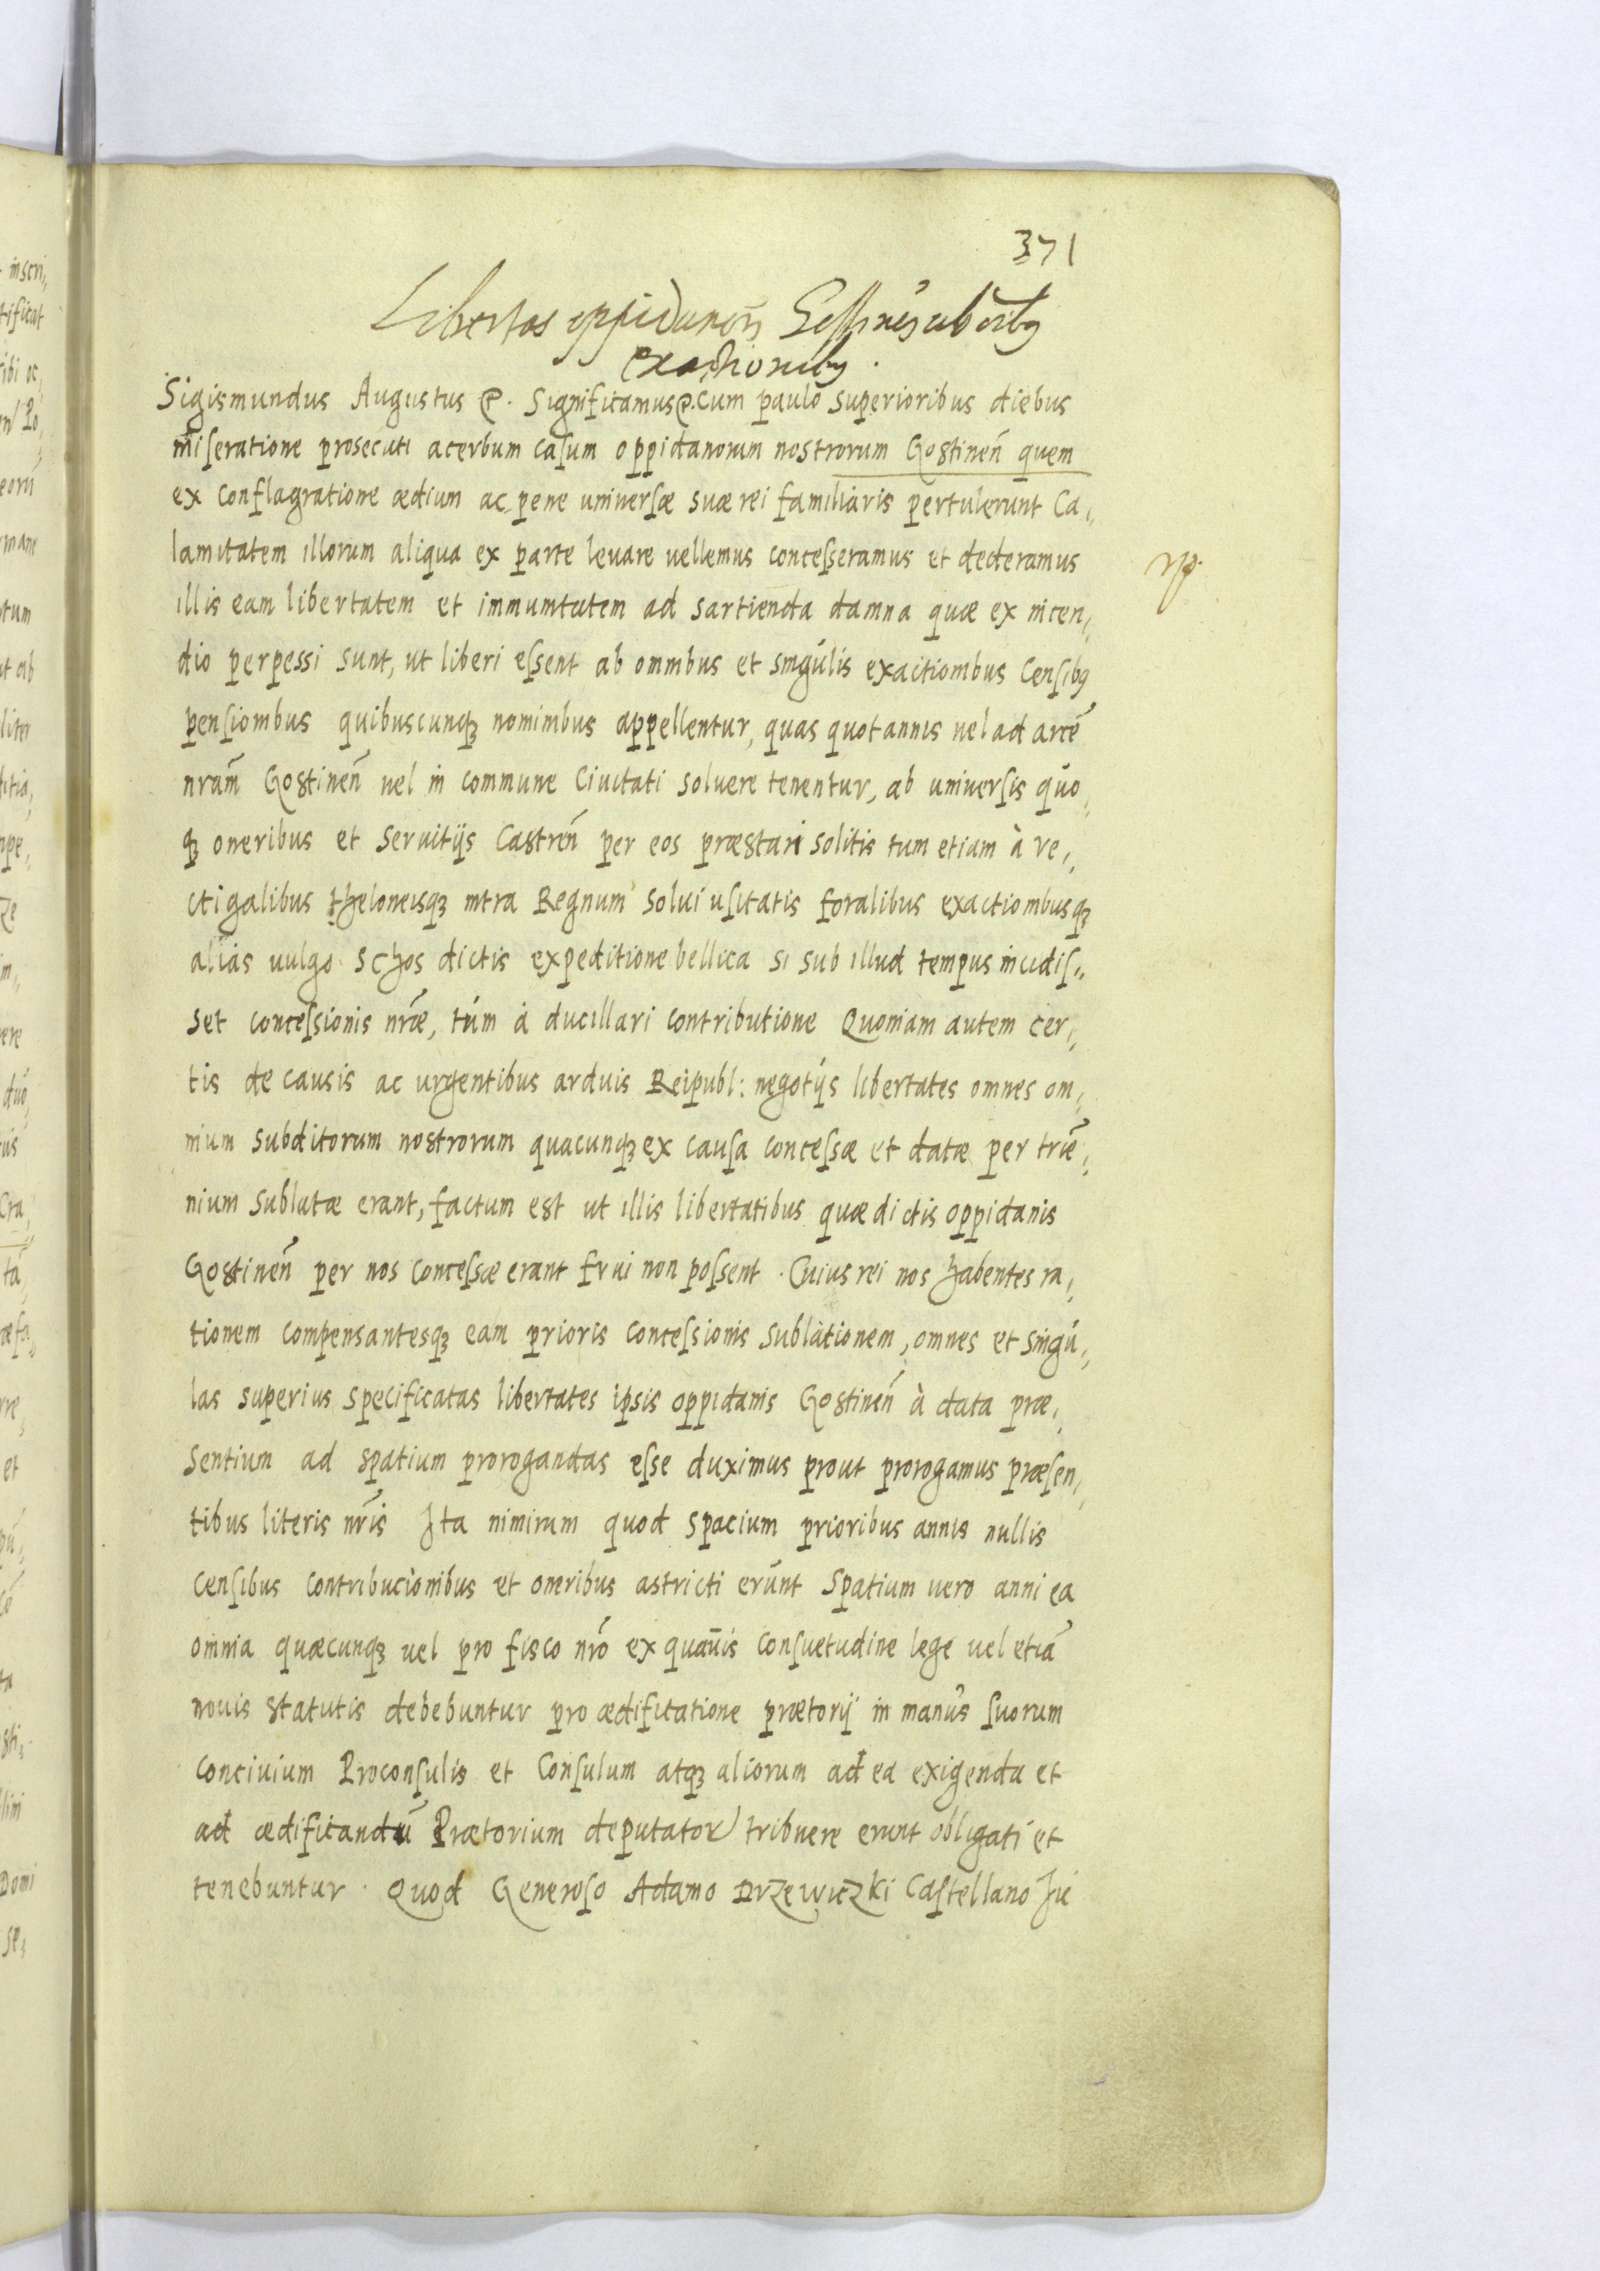 371
Libertas oppidanorũ Gostineñ ab oĩbꝫ
exactionibꝫ.
Sigismundus Augustus &. Significamus &. Cum paulo superioribus diebus
miseratione prosecuti acerbum casum oppidanorum nostrorum Gostineñ quem
ex conflagratione ædium ac pene universæ suæ rei familiaris pertulerunt Ca,,
lamitatem illorum aliqua ex parte levare vellemus concesseramus et dederamus
illis eam libertatem et immunitatem ad sartienda damna quæ ex incen,,
dio perpessi sunt, ut liberi essent ab omnibus et singulis exactionibus Censibꝫ
pensionibus quibuscunqꝫ nominibus appellentur, quas quotannis vel ad arcẽ
nrãm Gostineñ vel in commune Civitati solvere tenentur, ab universis quo,,
qꝫ oneribus et servitijs Castreñ per eos præstari solitis tum etiam à ve,,
ctigalibus theloneisqꝫ intra Regnum solvi usitatis foralibus exactionibusqꝫ
alias vulgo Schos dictis expeditione bellica si sub illud tempus incidis,,
set concessionis nrãe, tùm à ducillari contributione Quoniam autem cer,,
tis de causis ac urgentibus arduis Reipubl: negotijs libertates omnes om,,
nium subditorum nostrorum quacunqꝫ ex causa concessæ et datæ per triẽ,,
nium sublatæ erant, factum est ut illis libertatibus quæ dictis oppidanis
Gostineñ per nos concessæ erant frui non possent. Cuius rei nos habentes ra,,
tionem compensantesqꝫ eam prioris concessionis sublationem, omnes et singu,,
las superius specificatas libertates ipsis oppidanis Gostineñ à data præ,,
sentium ad spatium prorogandas esse duximus prout prorogamus præsen,,
tibus literis nrĩs Ita nimirum quod spacium prioribus annis nullis
censibus contribucionibus et omribus astricti erunt Spatium vero anni ea
omnia quæcunqꝫ vel pro fisco nrõ ex quavis consuetudine lege vel etiã
novis statutis debebuntur pro ædificatione prætorij in manus suorum
concivium Proconsulis et Consulum atqꝫ aliorum ad ea exigenda et
ad ædificandũ Prætorium deputatoꝝ tribuere erunt obligati et
tenebuntur. Quod Generoso Adamo Drzewiczki Castellano Ju